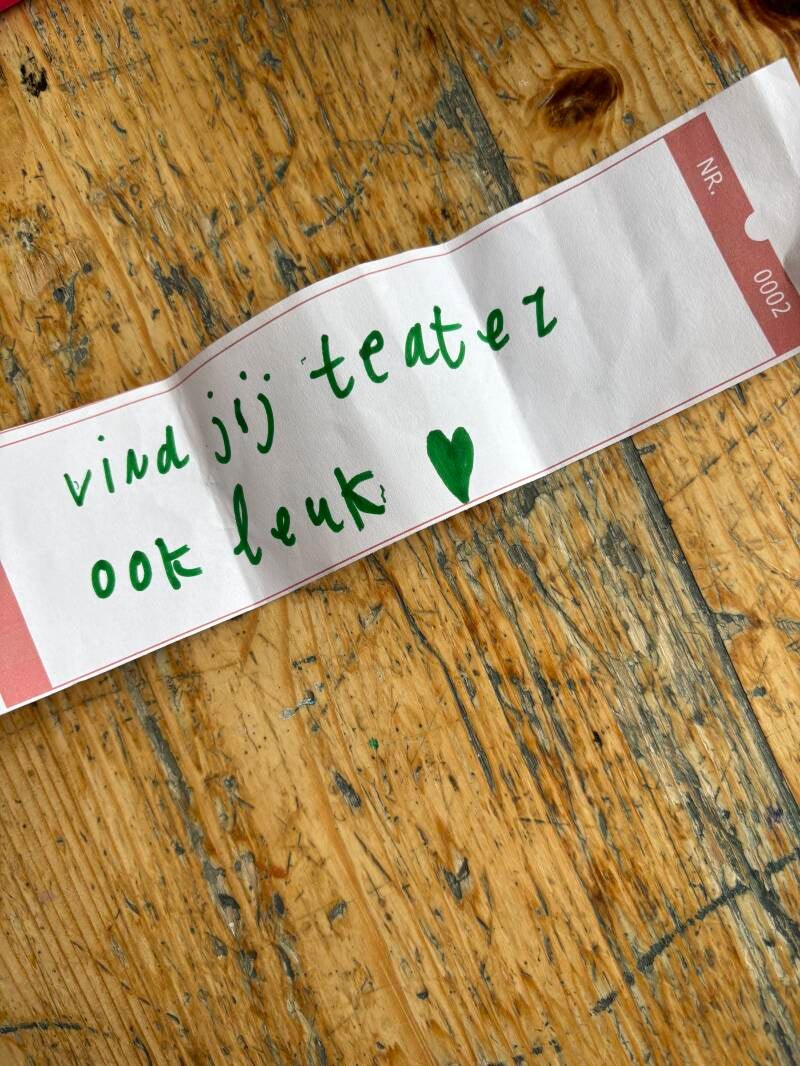 vind jij teater
ook leuk ♥
NR. 0002